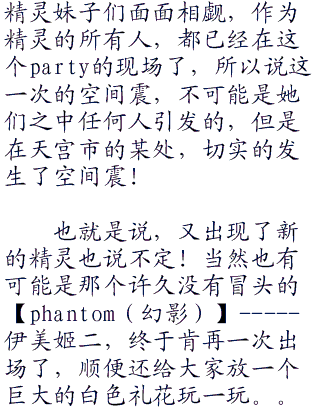 精灵妹子们面面相觑，作为
精灵的所有人，都已经在这
个party的现场了，所以说这
一次的空间震，不可能是她
们之中任何人引发的，但是
在天宫市的某处，切实的发
生了空间震！
也就是说，又出现了新
的精灵也说不定！当然也有
可能是那个许久没有冒头的
【phantom（幻影）】-----
伊美姬二，终于肯再一次出
场了，顺便还给大家放一个
巨大的白色礼花玩一玩。。